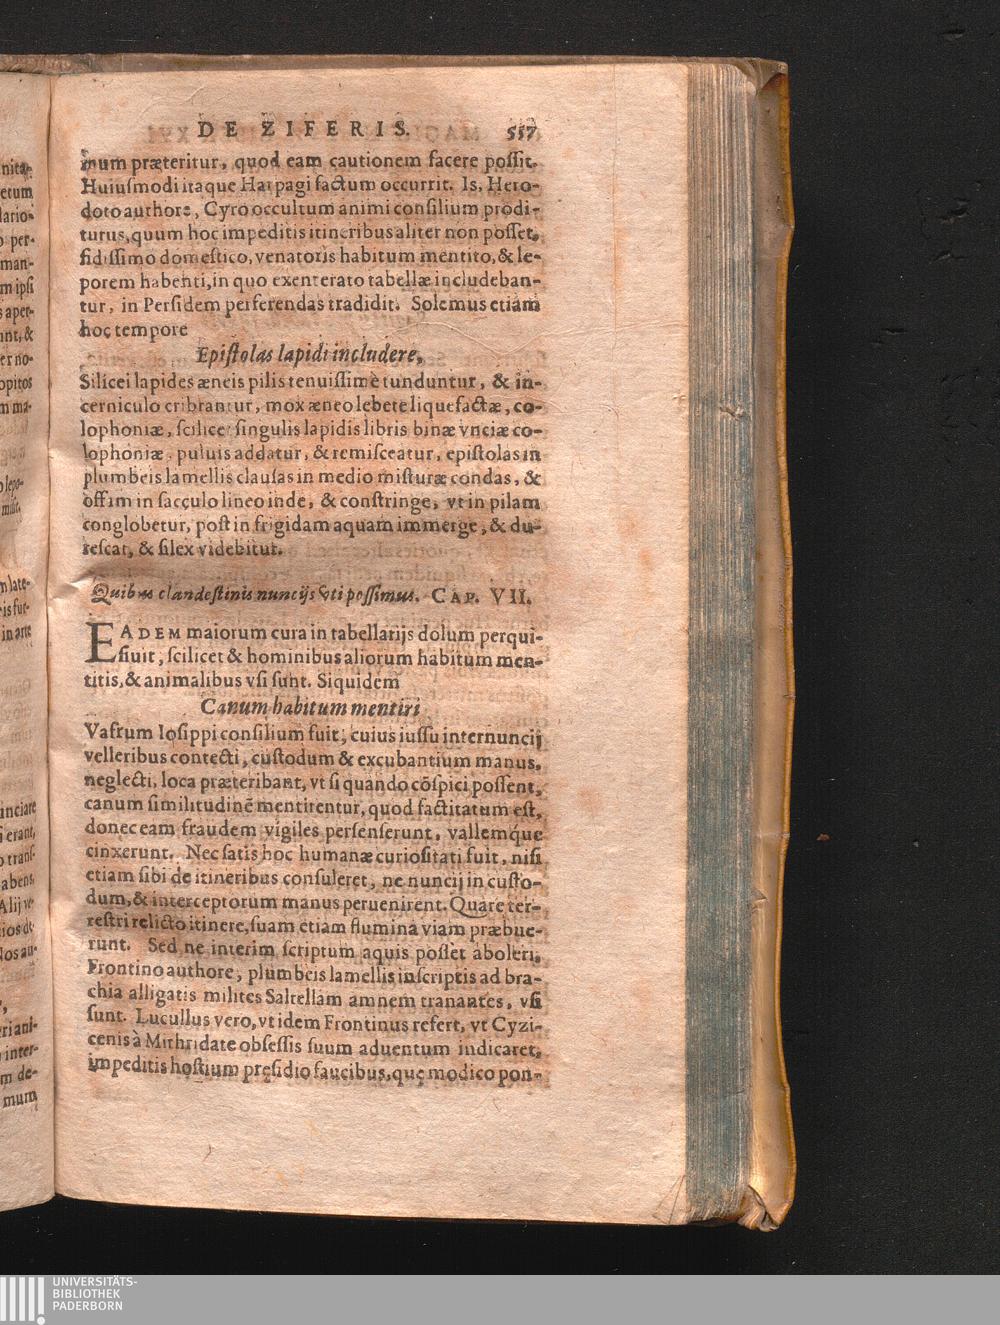 DE ZIFERIS. 557
mum præteritur, quod eam cautionem facere poſſit.
Huiuſmodi itaque Harpagi factum occurrit. Is, Hero-
doto authore, Cyro occultum animi conſilium prodi-
turus, quum hoc impeditis itineribus aliter non poſſet,
fidiſſimo domeſtico, venatoris habitum mentito, & le-
porem habenti, in quo exenterato tabellæ includeban-
tur, in Perſidem perferendas tradidit. Solemus etiam
hoc tempore
Epiſtolas lapidi includere,
Silicei lapides æneis pilis tenuiſſimè tunduntur, & in-
cerniculo cribrantur, mox æneo lebete liquefactæ, co-
lophoniæ, ſcilicet ſingulis lapidis libris binæ vnciæ co-
lophoniæ, puluis addatur, & remiſceatur, epiſtolas in
plumbeis lamellis clauſas in medio miſturæ condas, &
offam in ſacculo lineo inde, & conſtringe, vt in pilam
conglobetur, poſt in frigidam aquam immerge, & du-
reſcat, & ſilex videbitur.
Quibus clandeſtinis nuncijs vti poſſimus. CAP. VII.
EADEM maiorum cura in tabellarijs dolum perqui-
ſiuit, ſcilicet & hominibus aliorum habitum men-
titis, & animalibus vſi ſunt. Siquidem
Canum habitum mentiri
Vafrum Ioſippi conſilium fuit, cuius iuſſu internuncij
velleribus contecti, cuſtodum & excubantium manus,
neglecti, loca præteribant, vt ſi quando cõſpici poſſent,
canum ſimilitudinẽ mentirentur, quod factitatum eſt,
donec eam fraudem vigiles perſenſerunt, vallemq́ue
cinxerunt. Nec ſatis hoc humanæ curioſitati fuit, niſi
etiam ſibi de itineribus conſuleret, ne nuncij in cuſto-
dum, & interceptorum manus peruenirent. Quare ter-
reſtri relicto itinere, ſuam etiam flumina viam præbue-
runt. Sed ne interim ſcriptum aquis poſſet aboleri,
Frontino authore, plumbeis lamellis inſcriptis ad bra-
chia alligatis milites Saltellam amnem tranantes, vſi
ſunt. Lucullus vero, vt idem Frontinus refert, vt Cyzi-
cenis à Mithridate obſeſſis ſuum aduentum indicaret,
impeditis hoſtium pręſidio faucibus, quę modico pon-
UNIVERSITÄTS-
BIBLIOTHEK
PADERBORN